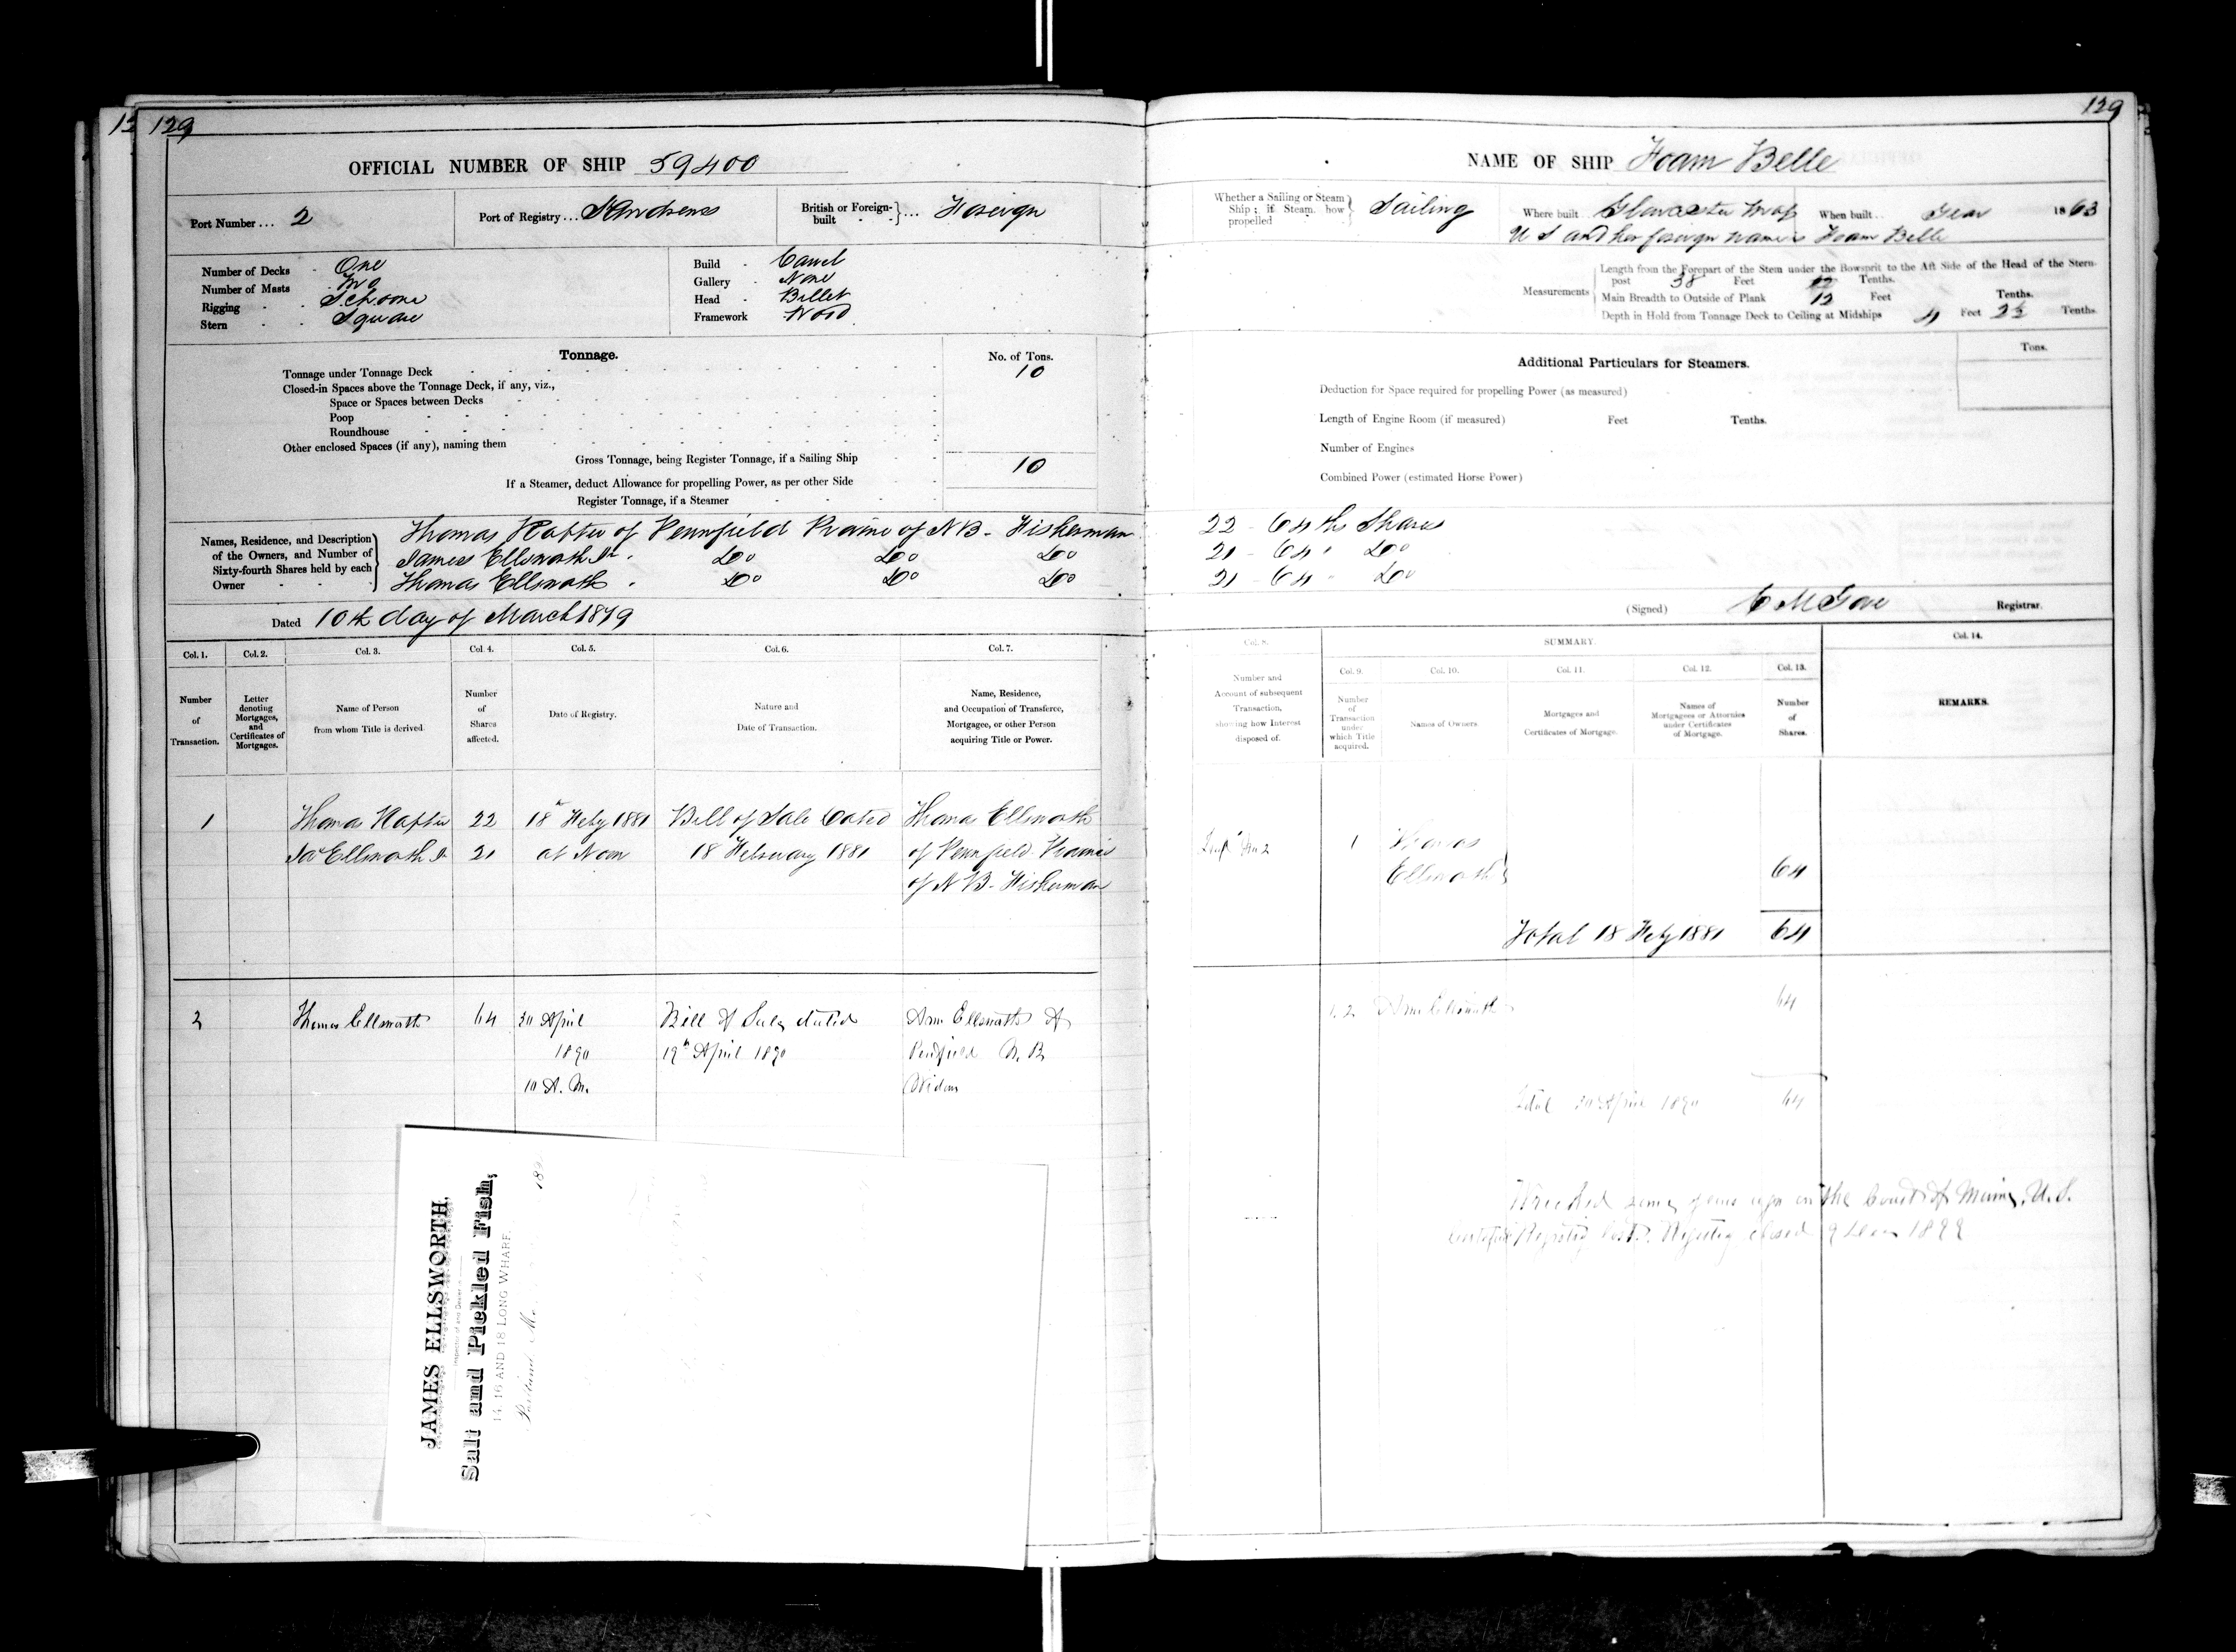 129
129
OFFICIAL NUMBER OF SHIP 59400
Port Number ... 2
Port of Registry ... St Andrews
British or Foreign-built ... Foreign
Number of Decks One
Number of Masts Two
Rigging Schooner
Stern Square
Build Carvel
Gallery None
Head Billet
Framework Wood
Tonnage.
No. of Tons.
Tonnage under Tonnage Deck 10
Closed-in Spaces above the Tonnage Deck, if any, viz.,
Space or Spaces between Decks
Poop
Roundhouse
Other enclosed Spaces (if any), naming them
Gross Tonnage, being Register Tonnage, if a Sailing Ship 10
If a Steamer, deduct Allowance for propelling Power, as per other Side
Register Tonnage, if a Steamer
Names, Residence, and Description of the Owners, and Number of Sixty-fourth Shares held by each Owner
Thomas of Pennfield of NB - Fisherman
James Ellsworth Jr Do Do Do
Thomas Ellsworth Do Do Do
Dated 10th day of March 1879
NAME OF SHIP Foam Belle
Whether a Sailing or Steam Ship; if Steam, how propelled Sailing
Where built Gloucester Mass
When built .. Year 1863
U S and her foreign name is Foam Belle
Measurements
Length from the Forepart of the Stem under the Bowsprit to the Aft Side of the Head of the Stern-
post 38 Feet Tenths.
Main Breadth to Outside of Plank 12 Feet Tenths.
Depth in Hold from Tonnage Deck to Ceiling at Midships 4 Feet Tenths.
Additional Particulars for Steamers.
Tons.
Deduction for Space required for propelling Power (as measured)
Length of Engine Room (if measured) Feet Tenths.
Number of Engines
Combined Power (estimated Horse Power)
22 - 64ths Shares
21 - 64 " Do
21 - 64 " Do
(Signed) C M Gove Registrar.
Col. 1.
Col. 2.
Col. 3.
Col. 4.
Col. 5.
Col. 6.
Col. 7.
Number of Transaction.
Letter denoting Mortgages, and Certificates of Mortgages.
Name of Person from whom Title is derived.
Number of Shares affected.
Date of Registry.
Nature and Date of Transaction.
Name, Residence, and Occupation of Transferee, Mortgagee, or other Person acquiring Title or Power.
Col. 8.
SUMMARY.
Col. 9.
Col. 10.
Col. 11.
Col. 12.
Col. 13.
Col. 14.
Number and Account of subsequent Transaction, showing how Interest disposed of.
Number of Transaction under which Title acquired.
Names of Owners.
Mortgages and Certificates of Mortgage.
Names of Mortgagees or Attornies under Certificates of Mortgage.
Number of Shares.
REMARKS.
1 Thomas 22 18 Feby 1881 Bill of Sale Dated Thomas Ellsworth
Jas Ellsworth Jr 21 at Noon 18 February 1881 of Pennfield
of N B - Fisherman
1 Thomas
Ellsworth 64
Total 18 Feby 1881 64
2 Thomas Ellsworth 64 April Bill of Sale dated Ann Ellsworth of
1890 19th April 1890 N. B.
10 A. M. Widow
2 Ann Ellsworth 64
Total April 1890 64
Wrecked some years ago on the Coast of Maine, U. S.
Certificate Registry lost. Registry closed 9
JAMES ELLSWORTH,
Salt and Pickled Fish,
14, 16 AND 18 LONG WHARF.
Portland Me. 18